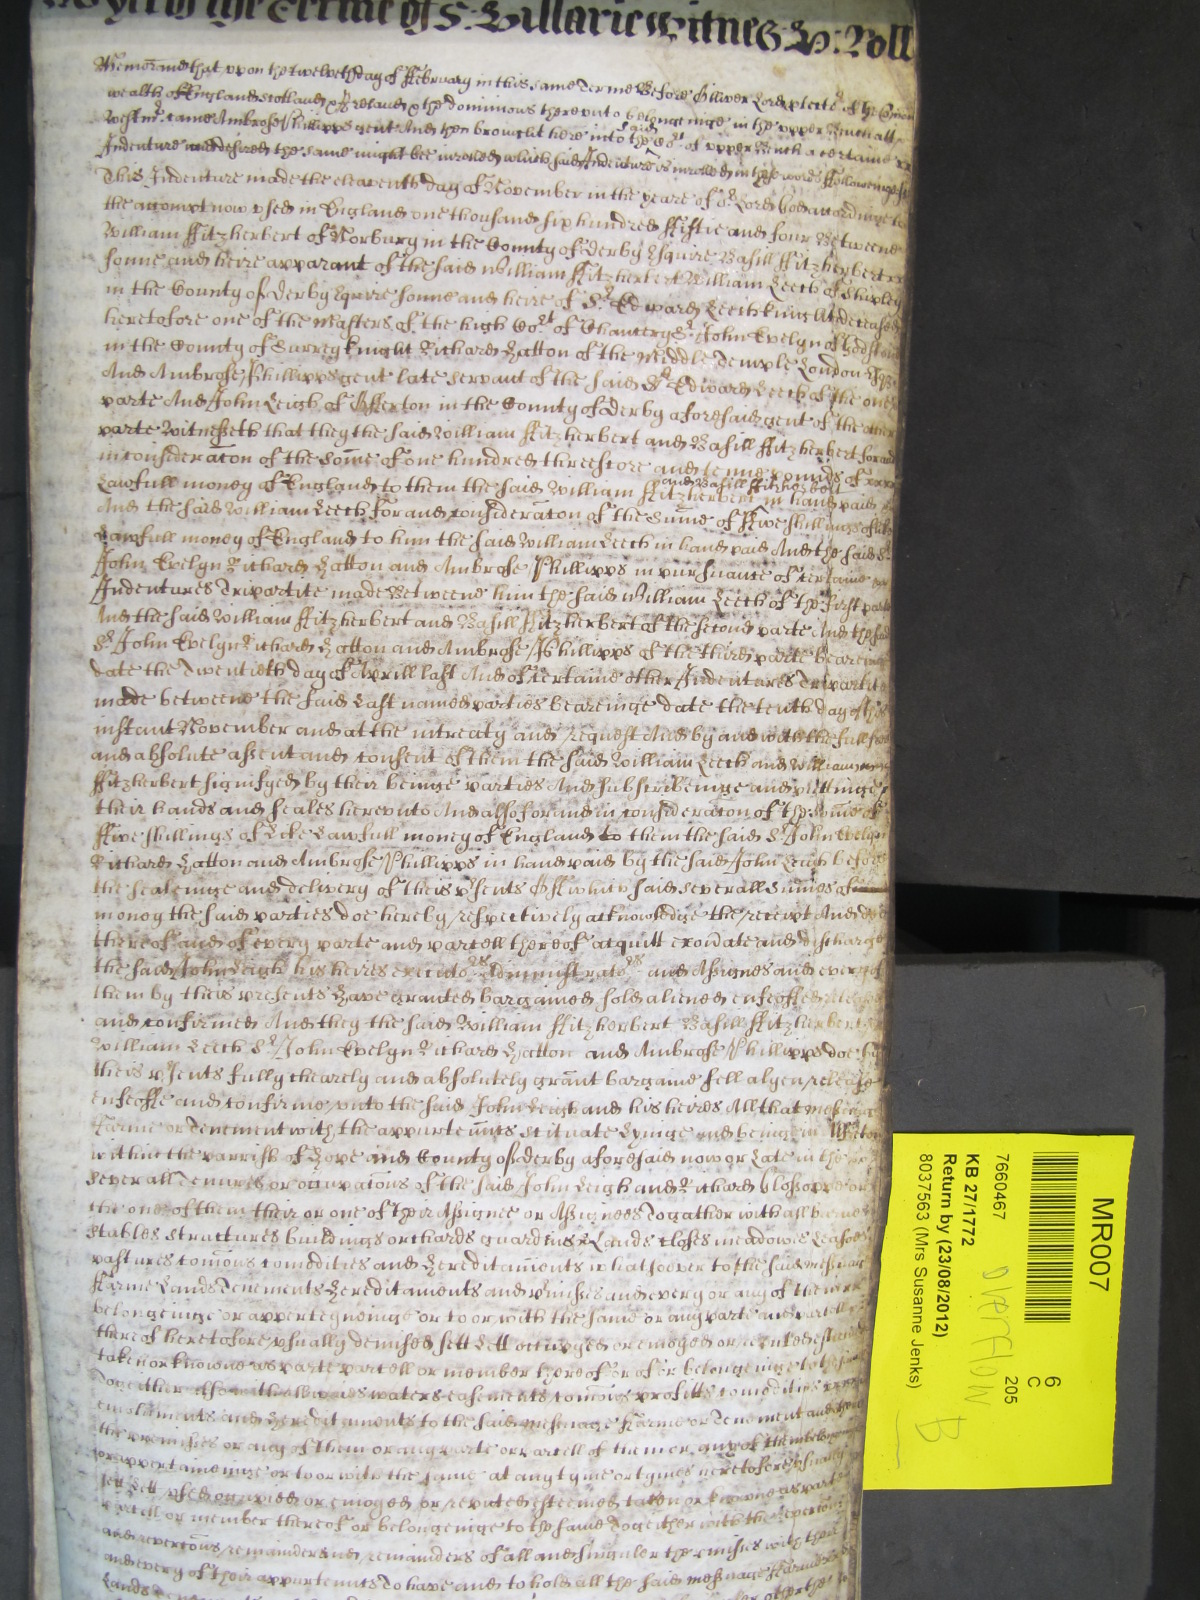 yett of the Terme of S: Hillarie Witnes H: Roll
Memorand that upon the twelveth day of ffebruary in this same Terme Before Olliver Lord Protect.r of the Comon
wealth of England Scotland & Ireland & the dominions thereunto belongeinge in the upper Bench att
Westm.r came Ambrose Phillipps gent And then brought here into the said Co.rt of upper Bench a certaine
Indenture and desired the same might bee inrolled which said Indenture is inrolled in these words followeinge
This Indenture made the eleaventh day of November in the yeare of o.r Lord God accordinge to
the accompt now used in England one thousand six hundred ffiftie and four Betweene
William ffitzherbert of Norbury in the County of derby Esquire Basill ffitzherbert
sonne and heire apparant of the said William ffitzherbert William Leech of Shipley
in the County of derby Esquire sonne and heire of S.r Edward Leech knight deceased
heretofore one of the Masters of the high Co.rt of Chancery S.r John Evelyn of Godston
in the County of Surrey knight Richard Hatton of the Middle Temple London Esq
And Ambrose Phillipps gent late servant of the said S.r Edward Leech of the one
parte And John Leigh of Offerton in the County of derby aforesaid gent of the other
parte Witnesseth that they the said William ffitzherbert and Basill ffitzherbert for and
in consideracon of the Some of one hundred threescore and tenne pounds of
and Basill ffitzherbert
Lawfull money of England to them the said William ffitzherbert in hand paid
And the said William Leech for and consideracon of the Sume of ffive shillings of like
Lawfull money of England to him the said William Leech in hand paid And the said S.r
John Evelyn Richard Hatton and Ambrose Phillipps in pursuance of certaine
Indentures Tripartite made Betweene him the said William Leech of the first parte
And the said William ffitzherbert and Basill ffitzherbert of the second parte And the said
S.r John Evelyn Richard Hatton and Ambrose Phillipps of the third parte beareinge
date the Twentieth day of Aprill last And of certaine other Indentures Tripartite
made betweene the said Last named parties beareinge date the tenth day of this
instant November and at the intreaty and request And by and with the full free
and absolute assent and consent of them the said William Leech and William
ffitzherbert signifyed by their beinge parties And subscribeinge and puttinge
their hands and seales hereunto And also for and in consideracon of the some of
ffive shillings of Like Lawfull money of England to them the said S.r John Evelyn
Richard Hatton and Ambrose Phillipps in hand paid by the said John Leigh before
the sealeinge and delivery of theis p'sents Of which said severall Sumes of
money the said parties doe hereby respectively acknowledge the receipt And
thereof and of every parte and parcell thereof acquitt exon'ate and discharge
the said John Leigh his heires executo.rs Administrato.rs and Assignes and every of
them by theis presents Have granted bargained sold aliened enfeoffed
and confirmed And they the said William ffitzherbert Basill ffitzherbert
William Leech S.r John Evelyn Richard Hatton and Ambrose Phillipps doe by
theis p'sents fully clearely and absolutely grant bargaine sell alyen release
enfeoffe and confirme unto the said John Leigh and his heires All that messuage
Farme or Tenement with the appurtenn'ts scituate Lyinge and beinge in Offerton
within the parrish of Hope and County of derby aforesaid now or Late in the
severall Tenures or occupacons of the said John Leigh and Richard or
the one of them their or one of their Assignee or Assignees Togather with all
stables structures buildings orchards guardins Lands closes meadowes Leasoes
pastures comons comodities and Hereditaments whatsoever to the said messuage
ffarme Lands Tenements Hereditaments and p'misses and every or any of them
belongeinge or apperteyneinge or to or with the same or any parte and parcell
thereof heretofore usually demised sett Lett occupyed or enioyed or reputed
taken or knowne as parte parcell or member thereof or of or belongeinge to the same
Togeither also with all waters easements comons profitts comodities
emoluments and Hereditaments to the said messuage ffarme or Tenement and
the p'misses or any of them or any parte or parcell of them or any of them belongeinge
or apperteineinge or to or with the same at any tyme or tymes heretofore usually
sett Lett used occupied or enioyed or reputed esteemed taken or knowne as parte
parcell or member thereof or belongeinge to the same Togeither with the Revercon
and revercons remainder and remainders of all and singuler the p'misses with their
and every of their appurten'nts To have and to hold all the said messuage ffarme
Lands
MR007
6
C
205
7660467
overflow
B
KB 27/1772
Return by (23/08/2012)
8037563 (Mrs Susanne Jenks)